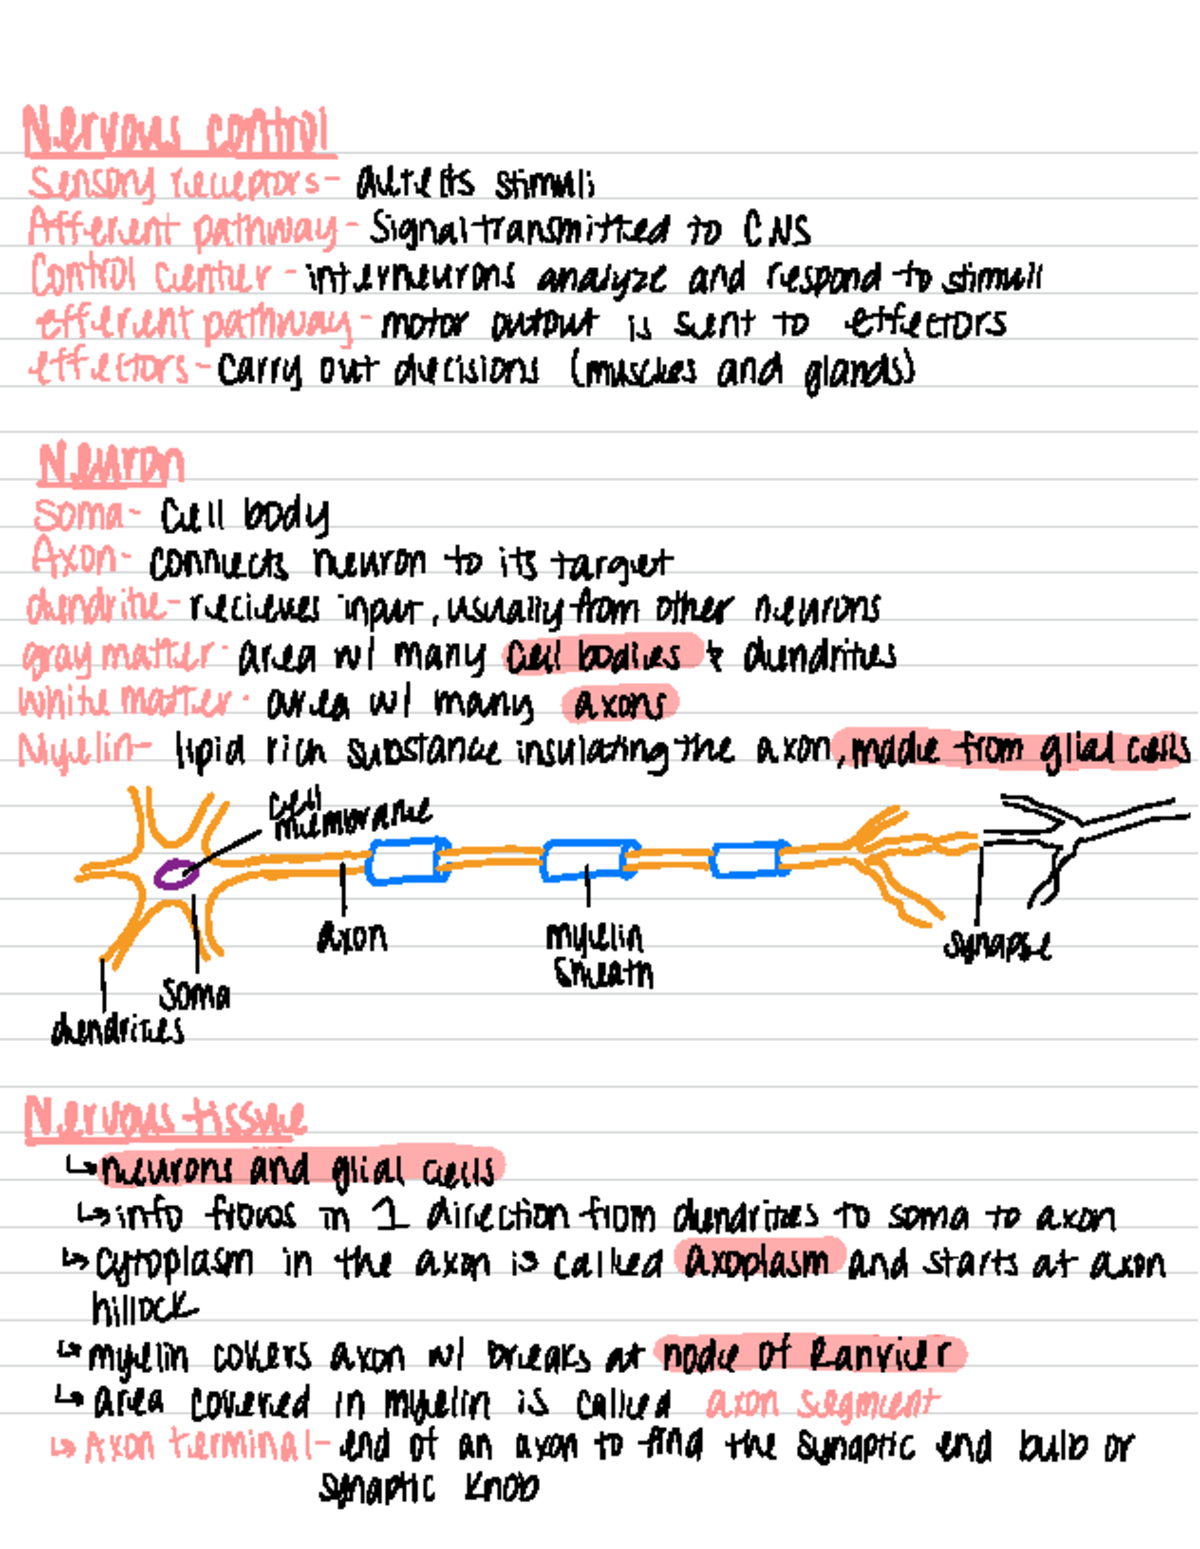 Nervous control
Sensory receptors- detects stimuli
Afferent pathway- Signal transmitted to CNS
Control center- interneurons analyze and respond to stimuli
efferent pathway- motor output is sent to effectors
effectors- carry out decisions (muscles and glands)
Neuron
Soma- Cell body
Axon- connects neuron to its target
dendrite- recieves input, usually from other neurons
gray matter- area w/ many cell bodies & dendrites
White matter- area w/ many axons
Myelin- lipid rich substance insulating the axon, made from glial cells
cell
membrane
axon
myelin
sheath
synapse
soma
dendrites
Nervous tissue
↳ neurons and glial cells
↳ info flows in 1 direction from dendrites to soma to axon
↳ cytoplasm in the axon is called axoplasm and starts at axon
hillock
↳ myelin covers axon w/ breaks at node of Ranvier
↳ area covered in myelin is called axon segment
↳ Axon terminal- end of an axon to find the synaptic end bulb or
synaptic knob